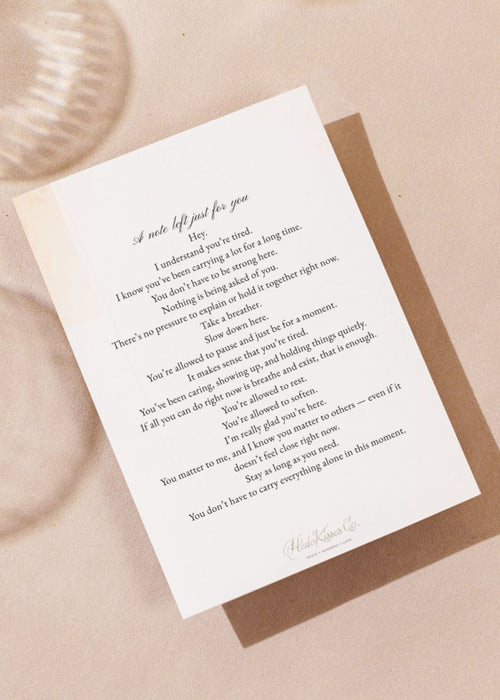 A note left just for you
Hey.
I understand you're tired.
I know you've been carrying a lot for a long time.
You don't have to be strong here.
Nothing is being asked of you.
There's no pressure to explain or hold it together right now.
Take a breather.
Slow down here.
You're allowed to pause and just be for a moment.
It makes sense that you're tired.
You've been caring, showing up, and holding things quietly.
If all you can do right now is breathe and exist, that is enough.
You're allowed to rest.
You're allowed to soften.
I'm really glad you're here.
You matter to me, and I know you matter to others — even if it
doesn't feel close right now.
Stay as long as you need.
You don't have to carry everything alone in this moment.
HaloKisses Co.